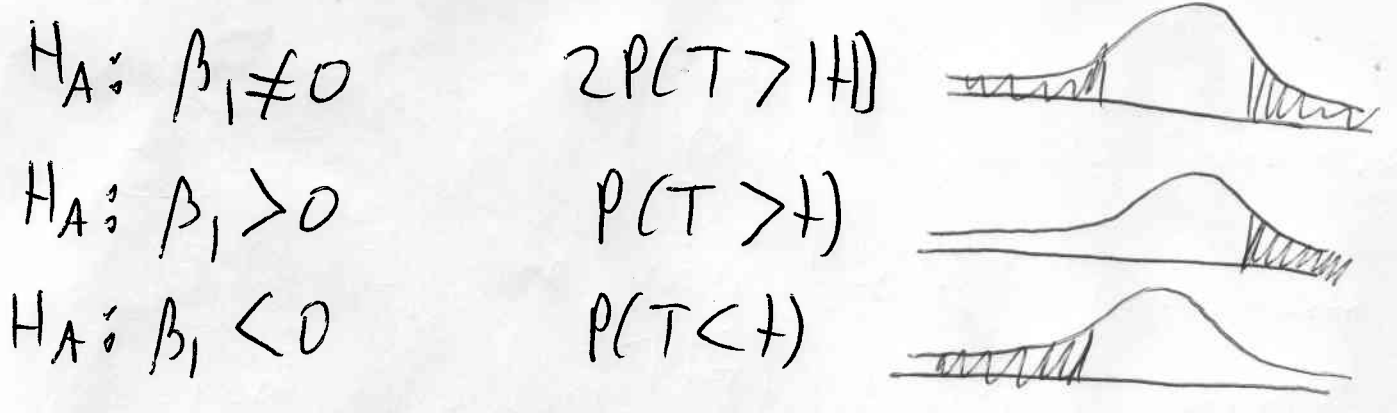 H_A: β₁ ≠ 0 2P(T > |t|)
H_A: β₁ > 0 P(T > t)
H_A: β₁ < 0 P(T < t)